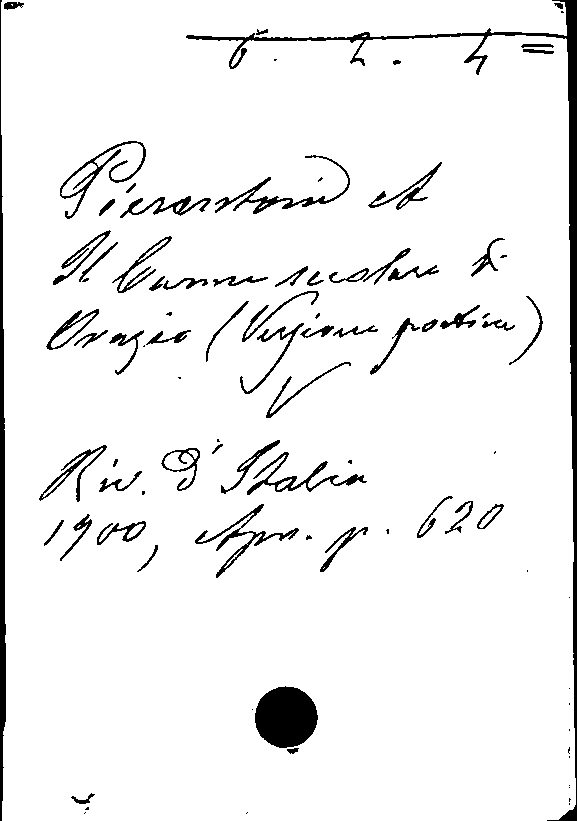 6. 2. 4=
Pierantoni A
Il Carme secolare di
Orazio (Versione poetica)
V
Riv. d'Italia
1900, Apr. p. 620